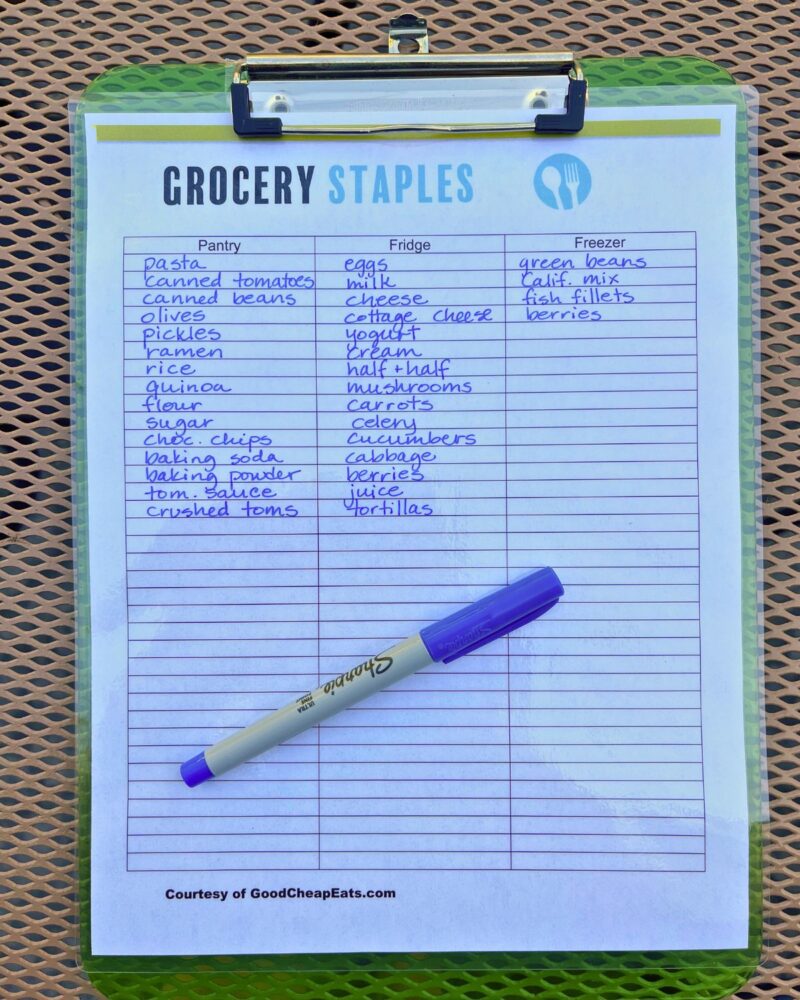 GROCERY STAPLES
Pantry Fridge Freezer
pasta eggs green beans
canned tomatoes milk Calif. mix
canned beans cheese fish fillets
olives cottage cheese berries
pickles yogurt
ramen cream
rice half + half
quinoa mushrooms
flour carrots
sugar celery
choc. chips cucumbers
baking soda cabbage
baking powder berries
tom. sauce juice
crushed toms tortillas
Sharpie
ULTRA
FINE
Courtesy of GoodCheapEats.com